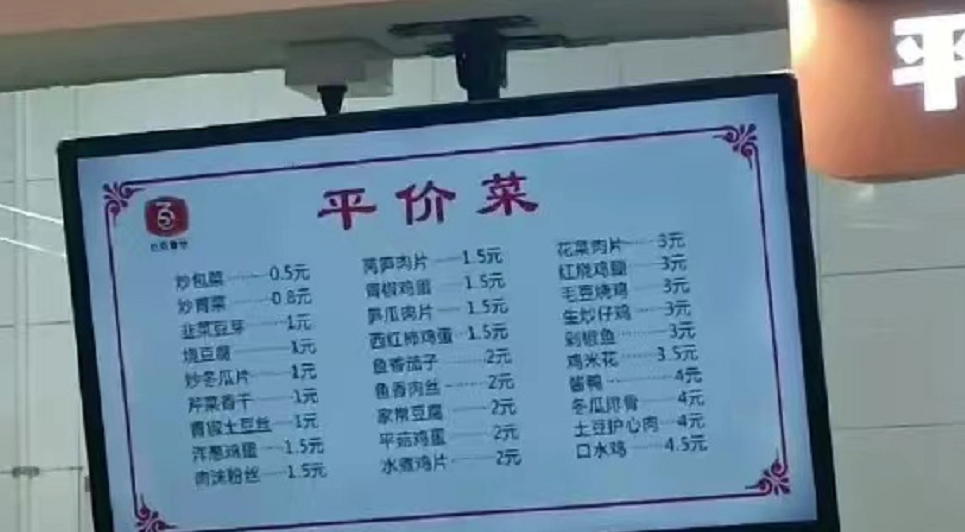 平
平价菜
炒包菜……0.5元
炒青菜……0.8元
韭菜豆芽……1元
烧豆腐……1元
炒冬瓜片……1元
芹菜香干……1元
青椒土豆丝…1元
洋葱鸡蛋…1.5元
肉沫粉丝…1.5元
莴笋肉片…1.5元
青椒鸡蛋…1.5元
笋瓜肉片…1.5元
西红柿鸡蛋…1.5元
鱼香茄子……2元
鱼香肉丝……2元
家常豆腐……2元
平菇鸡蛋……2元
水煮鸡片……2元
花菜肉片……3元
红烧鸡腿……3元
毛豆烧鸡……3元
生炒仔鸡……3元
剁椒鱼……3元
鸡米花……3.5元
酱鸭……4元
冬瓜排骨……4元
土豆护心肉…4元
口水鸡……4.5元